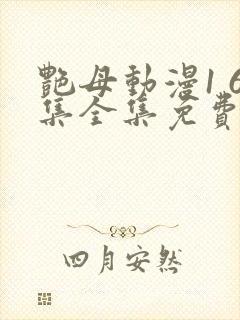 艷母動漫1 6
集全集免費
四月安然